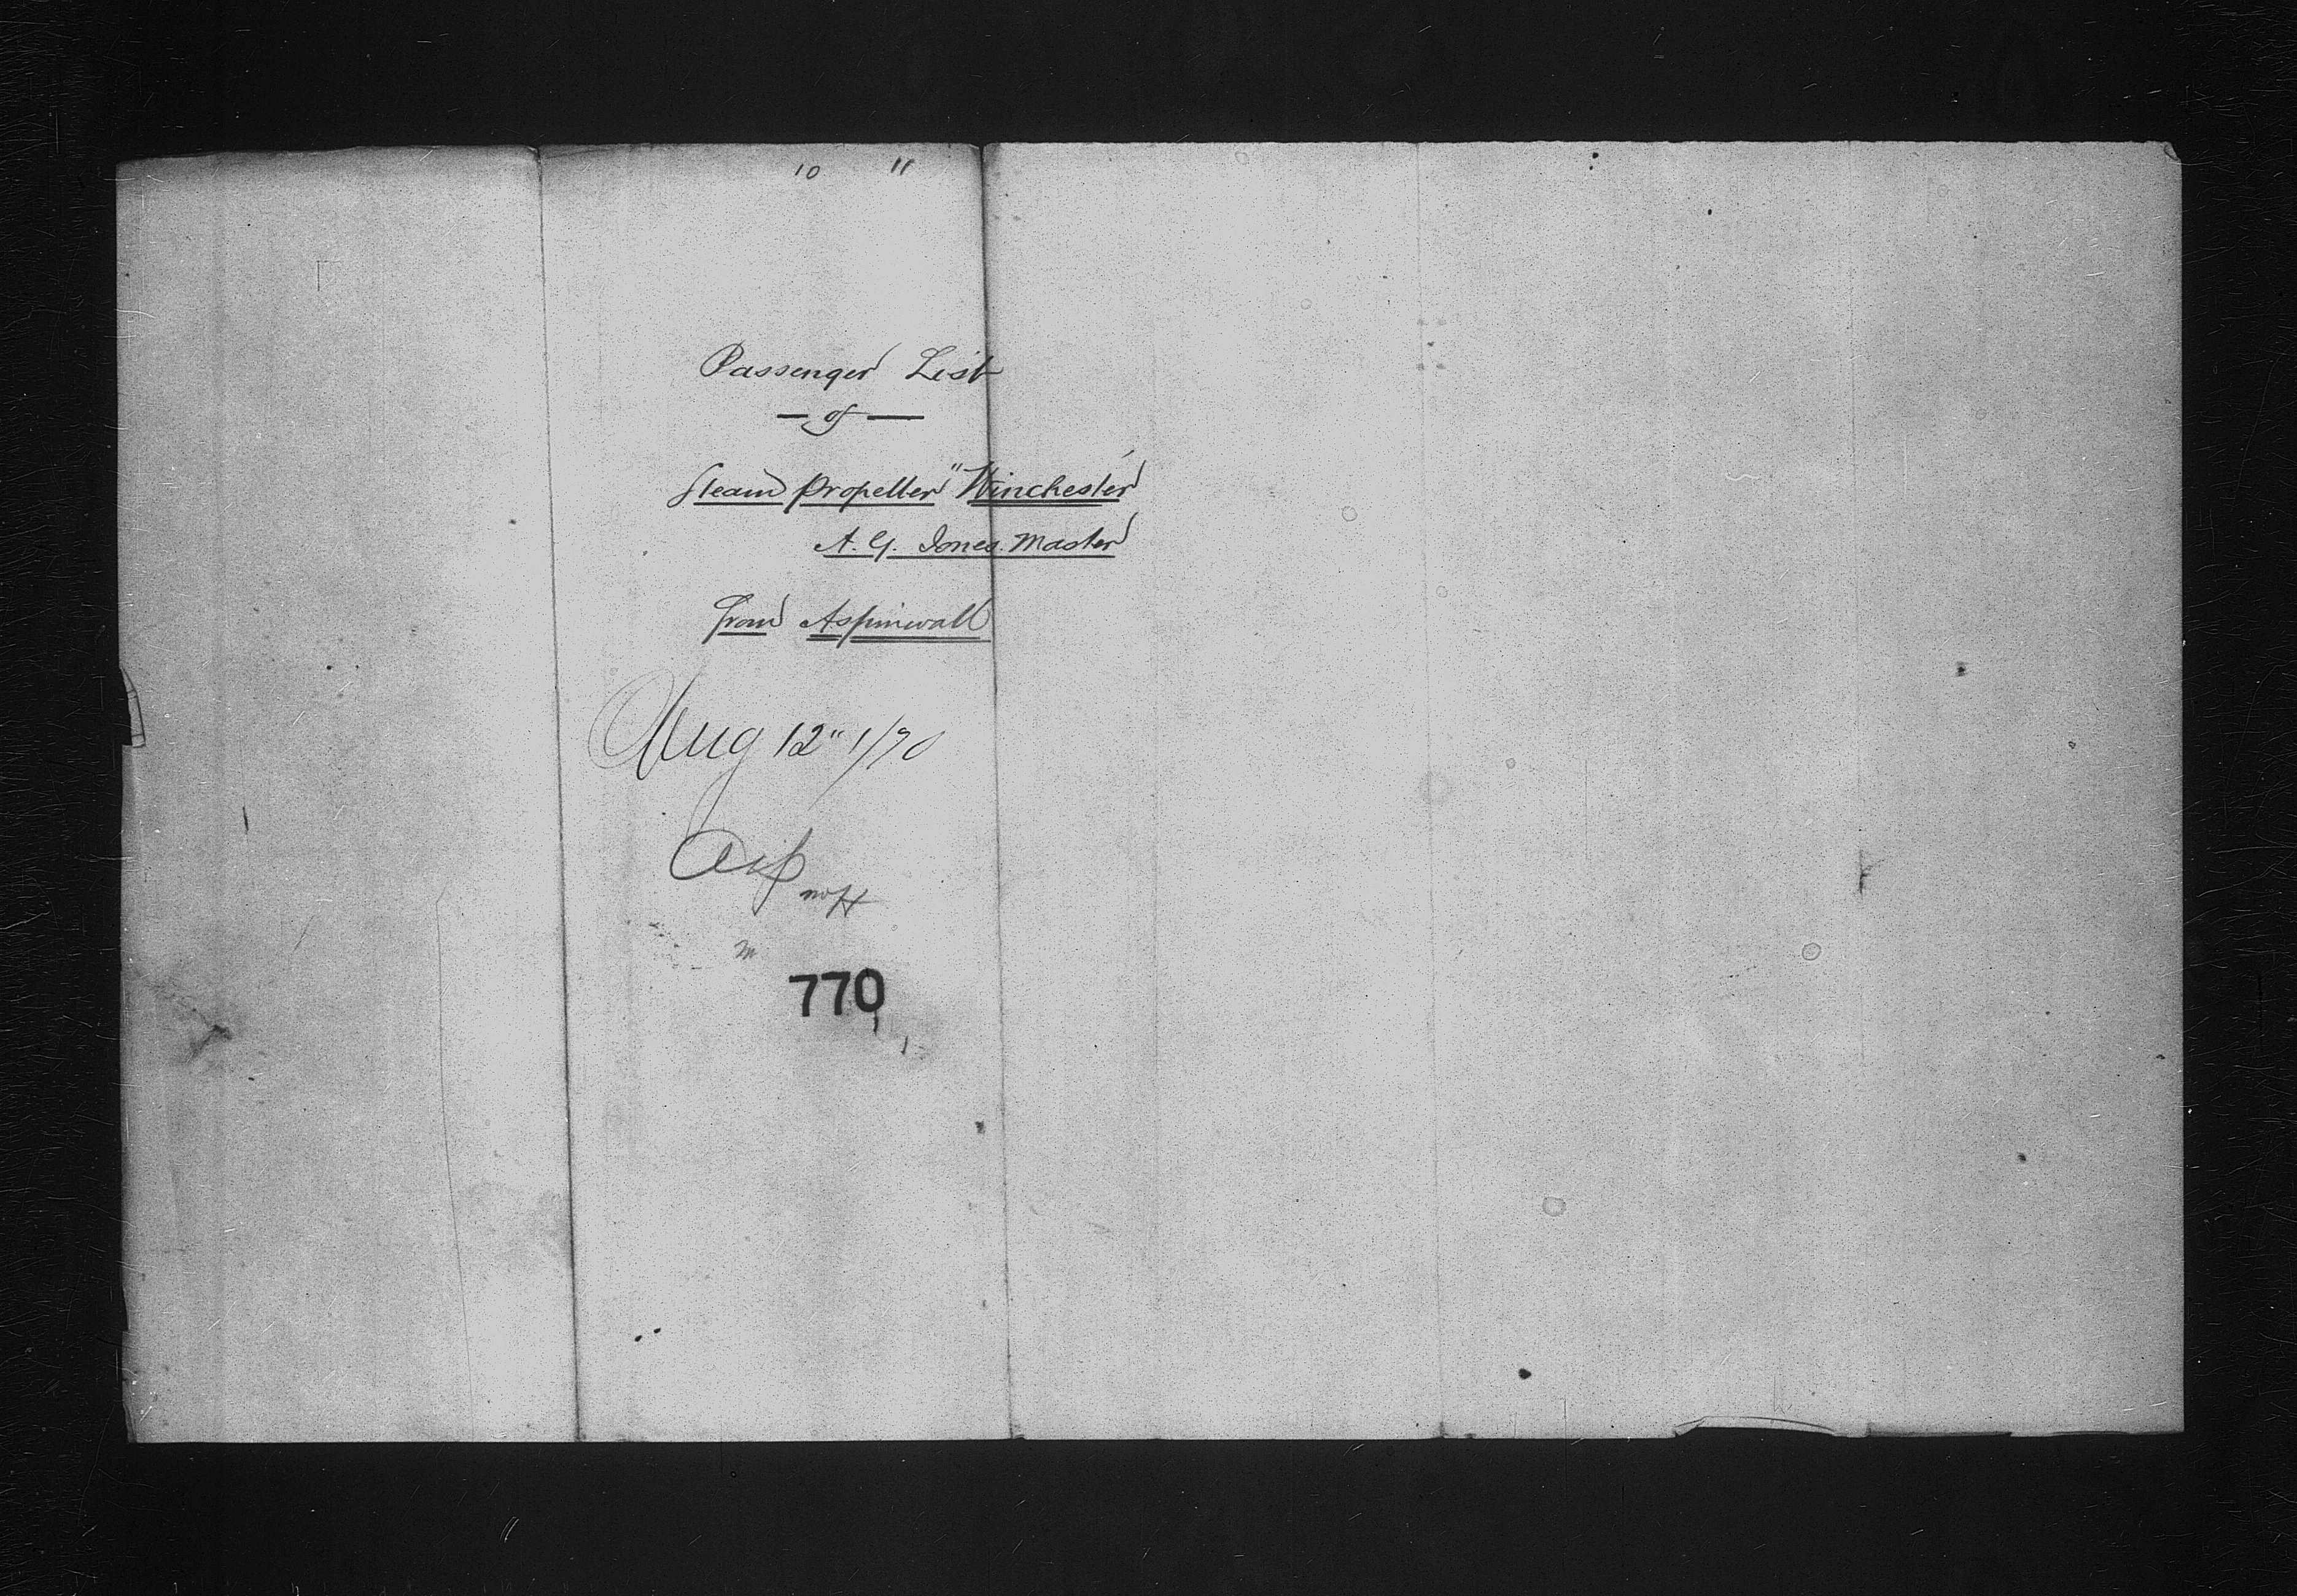 10 11
Passenger List
— of —
Steam Propeller "Winchester
A. G. Jones. Master
From Aspinwall
Aug 12" 1/70
Asp
m
770